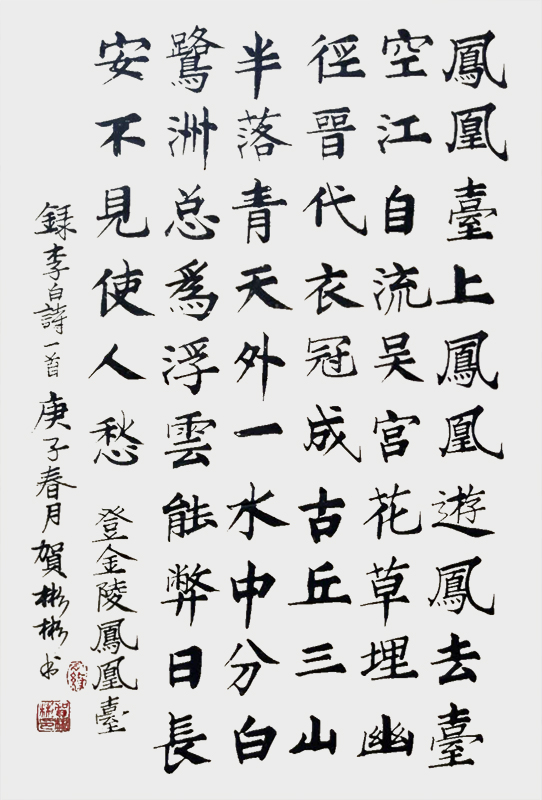 鳳凰臺上鳳凰遊鳳去臺
空江自流吴宫花草埋幽
徑晉代衣冠成古丘三山
半落青天外一水中分白
鷺洲总為浮雲能弊日長
安不見使人愁 登金陵鳳凰臺
録李白詩一首 庚子春月賀彬彬书